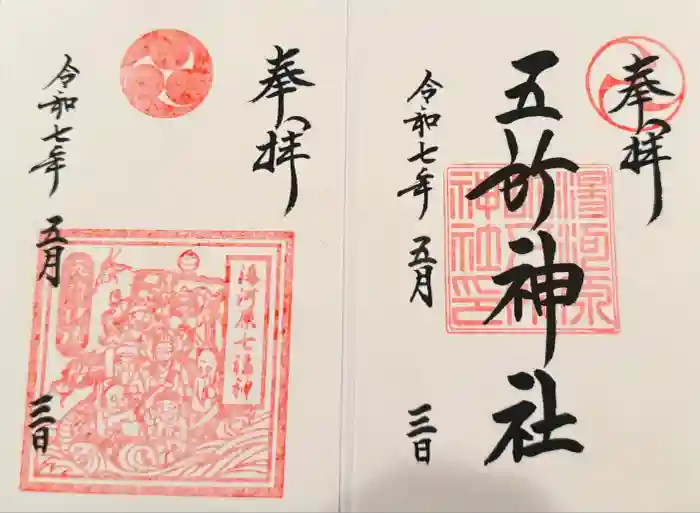 奉拝
五所神社
令和七年 五月 三日
湯河原五所神社印
奉拝
湯河原七福神
令和七年 五月 三日